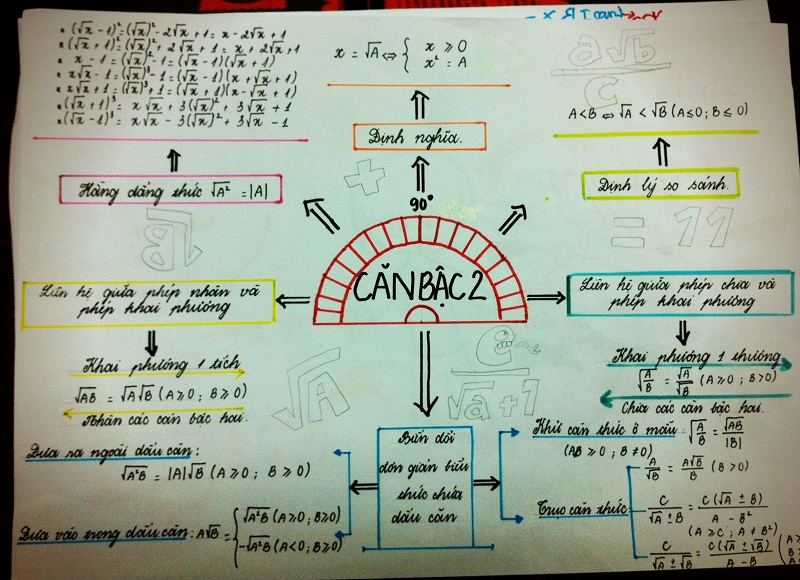 * (√x - 1)² = (√x)² - 2√x + 1 = x - 2√x + 1
* (√x + 1)² = (√x)² + 2√x + 1 = x + 2√x + 1
* x - 1 = (√x)² - 1 = (√x - 1)(√x + 1)
* x√x - 1 = (√x)³ - 1 = (√x - 1)(x + √x + 1)
* x√x + 1 = (√x)³ + 1 = (√x + 1)(x - √x + 1)
* (√x + 1)³ = x√x + 3(√x)² + 3√x + 1
* (√x - 1)³ = x√x - 3(√x)² + 3√x - 1
Hằng đẳng thức √A² = |A|
x = √A ⇔ { x ≥ 0
x² = A
Định nghĩa.
90°
a√b
C
A < B ⇔ √A < √B (A ≤ 0; B ≤ 0)
Định lý so sánh.
+
= 11
CĂN BẬC 2
Liên hệ giữa phép nhân và
phép khai phương
Khai phương 1 tích
√AB = √A√B (A ≥ 0; B ≥ 0)
Nhân các căn bậc hai.
Liên hệ giữa phép chia và
phép khai phương
Khai phương 1 thương
√A/B = √A/√B (A ≥ 0; B > 0)
Chia các căn bậc hai.
√A
C
√a + 1
Biến đổi
đơn giản biểu
thức chứa
dấu căn
Đưa ra ngoài dấu căn:
√A²B = |A|√B (A ≥ 0; B ≥ 0)
Đưa vào trong dấu căn: A√B = { √A²B (A ≥ 0; B ≥ 0)
-√A²B (A < 0; B ≥ 0)
Khử căn thức ở mẫu √A/B = √AB/|B|
(AB ≥ 0; B ≠ 0)
Trục căn thức
A/√B = A√B/B (B > 0)
C/√A ± B = C(√A ± B)/A - B²
(A ≥ C; A ≠ B²)
C/√A ± √B = C(√A ± √B)/A - B